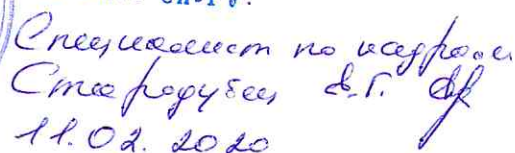 Специалист по кадрам
Стародубец
11.02.2020